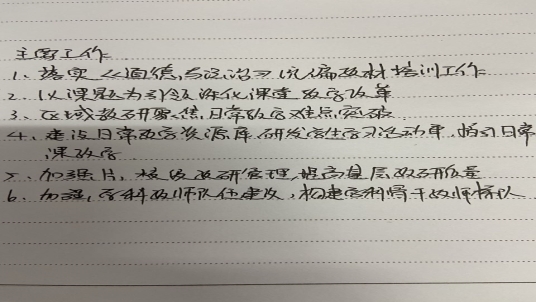 主要工作
1、落实《道德与法治》统编教材培训工作
2、以课题为引领深化课堂教学改革
3、区域教研开展，日常教学难点突破
4、建设日常教学资源库，研发学生学习活动单，指引日常
课教学
5、加强片、校级教研管理，提高基层教研质量
6、加强，学科教师队伍建设，构建学科骨干教师梯队